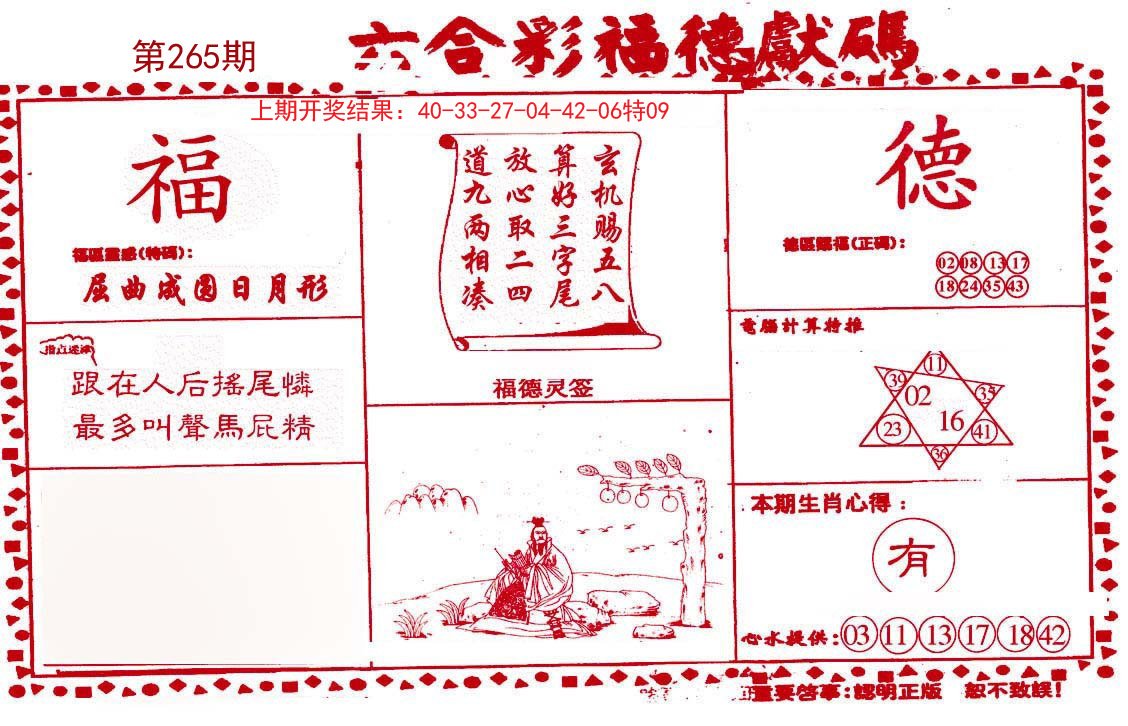 第265期
六合彩福德獻碼
上期开奖结果：40-33-27-04-42-06特09
福
福區靈感(特碼)：
屈曲成圆日月形
指点迷津
跟在人后搖尾憐
最多叫聲馬屁精
玄机赐五八
算好三字尾
放心取二四
道九两相凑
福德灵签
德
德區賜福(正碼)：
02 08 13 17
18 24 35 43
電腦計算特推
11
39 02 35
23 16 41
36
本期生肖心得：
有
心水提供：03 11 13 17 18 42
重要啓事：認明正版 恕不致誤！